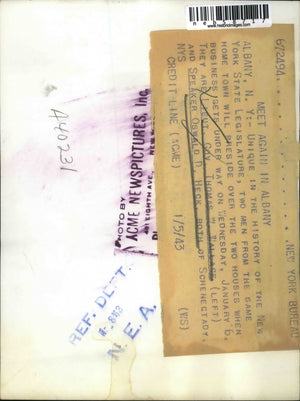 www.historicimages.com
672494
NEW YORK BUREAU
MEET AGAIN IN ALBANY
ALBANY, N. Y.-- UNIQUE IN THE HISTORY OF THE NEW
YORK STATE LEGISLATURE, TWO MEN FROM THE SAME
HOME TOWN WILL PRESIDE OVER THE TWO HOUSES WHEN
BUSINESS GETS UNDER WAY ON WEDNESDAY, JANUARY 6.
THEY ARE LIEUT. GOV. THOMAS W. WALLACE (LEFT)
AND SPEAKER OSWALD D. HECK, BOTH OF SCHENECTADY,
NYS
CREDIT LINE (ACME) 1/5/43 (WS)
PHOTO BY
ACME NEWSPICTURES, Inc.
461 EIGHTH AVE., NEW
REF. DEPT.
N. E. A.